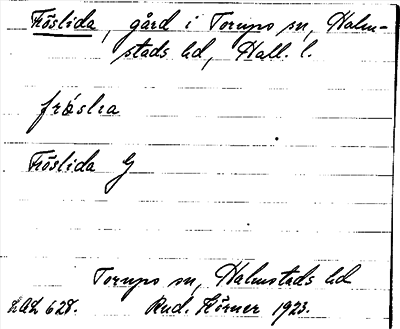 Fröslida, gård i Torups sn, Halm-
stads hd, Hall. l.
fröslɩa
Fröslida G
Torups sn, Halmstads hd
LAL 628. Rud. Körner 1923.